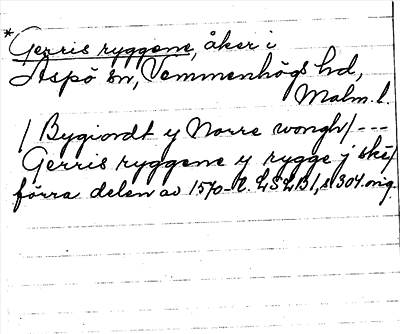 *Gerris ryggene, åker i
Aspö sn, Vemmenhögs hd,
Malm. l.
/ Bygiordt y Norre wongh/ ---
Gerris ryggene y rygge j ske/
förra delen av 1570-t. LSLB1, s 304 orig.